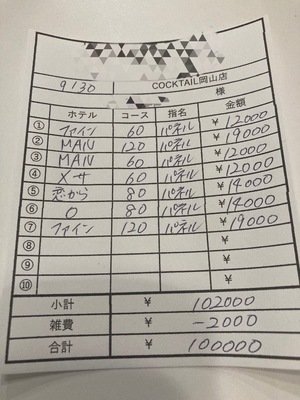 9/30 COCKTAIL岡山店
様
ホテル コース 指名 金額
① ファイン 60 パネル ¥12000
② MAN 120 パネル ¥19000
③ MAN 60 パネル ¥12000
④ メサ 60 パネル ¥12000
⑤ 恋から 80 パネル ¥14000
⑥ O 80 パネル ¥14000
⑦ ファイン 120 パネル ¥19000
⑧ ¥
⑨ ¥
⑩ ¥
小計 ¥ 102000
雑費 ¥ -2000
合計 ¥ 100000